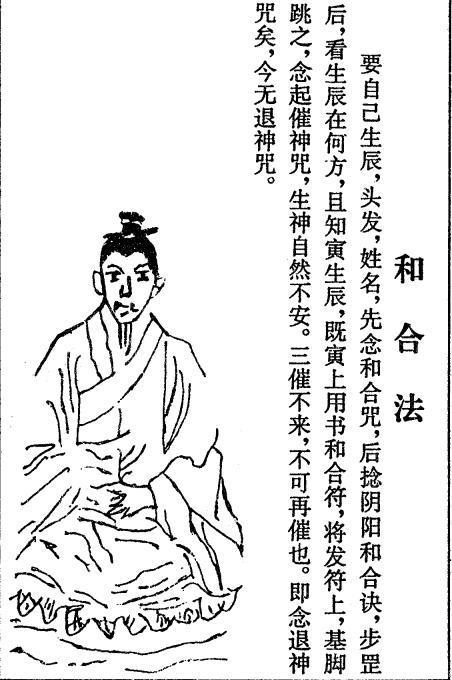 和合法
要自己生辰，头发，姓名，先念和合咒，后捻阴阳和合诀，步罡
后，看生辰在何方，且知寅生辰，既寅上用书和合符，将发符上，基脚
跳之，念起催神咒，生神自然不安。三催不来，不可再催也。即念退神
咒矣，今无退神咒。